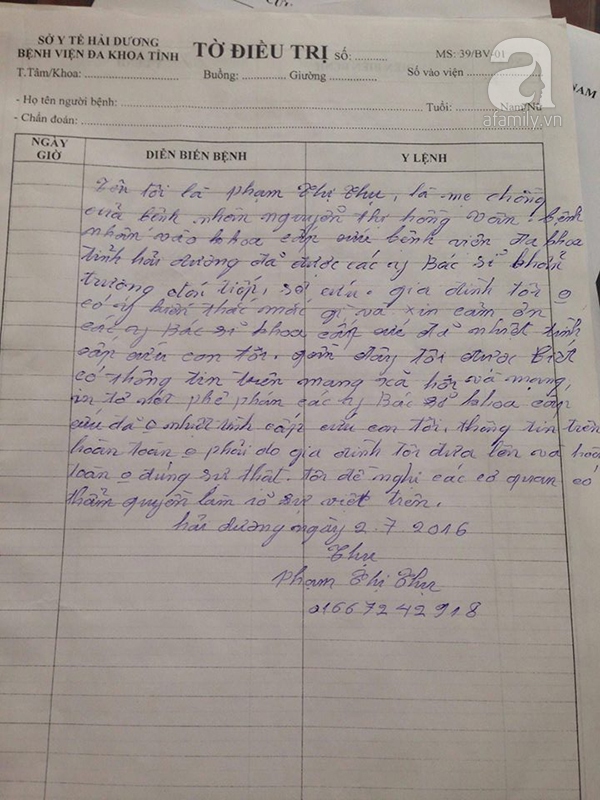 SỞ Y TẾ HẢI DƯƠNG
BỆNH VIỆN ĐA KHOA TỈNH
TỜ ĐIỀU TRỊ SỐ: ..........
MS: 39/BV-01
T.Tâm/Khoa: ........................ Buồng: ............. Giường ............. Số vào viện ..................
NAM
- Họ tên người bệnh: ........................ Tuổi: ............ Nam/Nữ
- Chẩn đoán: ........................
afamily.vn
NGÀY GIỜ
DIỄN BIẾN BỆNH
Y LỆNH
Tên tôi là Phạm Thị Thư, là mẹ chồng
của bệnh nhân nguyễn thị hồng vân. bệnh
nhân vào khoa cấp cứu bệnh viện đa khoa
tỉnh hải dương đã được các y Bác sĩ khẩn
trương đón tiếp, sơ cứu. gia đình tôi o
có ý kiến thắc mắc gì và xin cảm ơn
các y Bác sĩ khoa cấp cứu đã nhiệt tình
cấp cứu con tôi. gần đây tôi được biết
có thông tin trên mạng xã hội và mạng
in tơ nét phê phán các y Bác sĩ khoa cấp
cứu đã o nhiệt tình cấp cứu con tôi. thông tin trên
hoàn toàn o phải do gia đình tôi đưa lên và hoàn
toàn o đúng sự thật. tôi đề nghị các cơ quan có
thẩm quyền làm rõ sự việt trên.
hải dương ngày 2.7.2016
Thư
Phạm Thị Thư
01667242918